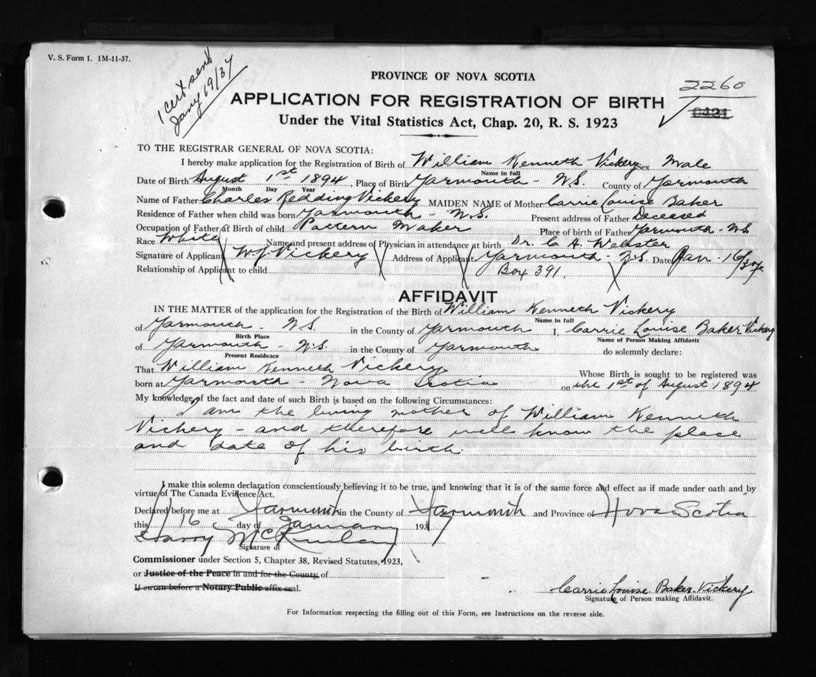 V. S. Form 1. 1M-11-37.
1 cert sent
Jany 19/37
PROVINCE OF NOVA SCOTIA
2260
APPLICATION FOR REGISTRATION OF BIRTH
0421
Under the Vital Statistics Act, Chap. 20, R. S. 1923
TO THE REGISTRAR GENERAL OF NOVA SCOTIA:
I hereby make application for the Registration of Birth of William Kenneth Vickery sex Male
Name in full
Date of Birth August 1st 1894, Place of Birth Yarmouth - N.S. County of Yarmouth
Month Day Year
Name of Father Charles Redding Vickery MAIDEN NAME of Mother Carrie Louise Baker
Residence of Father when child was born Yarmouth - N.S. Present address of Father Deceased
Occupation of Father at Birth of child Pattern Maker Place of birth of Father Yarmouth - N.S.
Race White Name and present address of Physician in attendance at birth Dr. C. A. Webster
Signature of Applicant W J Vickery Address of Applicant Yarmouth - N.S. Date Jan - 16/37
Relationship of Applicant to child Box 391.
AFFIDAVIT
IN THE MATTER of the application for the Registration of the Birth of William Kenneth Vickery
Name in full
of Yarmouth - N S in the County of Yarmouth I, Carrie Louise Baker Vickery
Birth Place Name of Person Making Affidavit
of Yarmouth - N.S in the County of Yarmouth do solemnly declare:
Present Residence
That William Kenneth Vickery Whose Birth is sought to be registered was
born at Yarmouth - Nova Scotia on the 1st of August 1894
My knowledge of the fact and date of such Birth is based on the following Circumstances:
I am the living mother of William Kenneth
Vickery - and therefore well know the place
and date of his birth.
I make this solemn declaration conscientiously believing it to be true, and knowing that it is of the same force and effect as if made under oath and by
virtue of The Canada Evidence Act.
Declared before me at Yarmouth in the County of Yarmouth and Province of Nova Scotia
this 16 day of January 193
Harry McKinlay
Signature of
Commissioner under Section 5, Chapter 38, Revised Statutes, 1923,
or Justice of the Peace in and for the County of
If sworn before a Notary Public affix seal.
Carrie Louise Baker Vickery
Signature of Person making Affidavit.
For Information respecting the filling out of this Form, see Instructions on the reverse side.